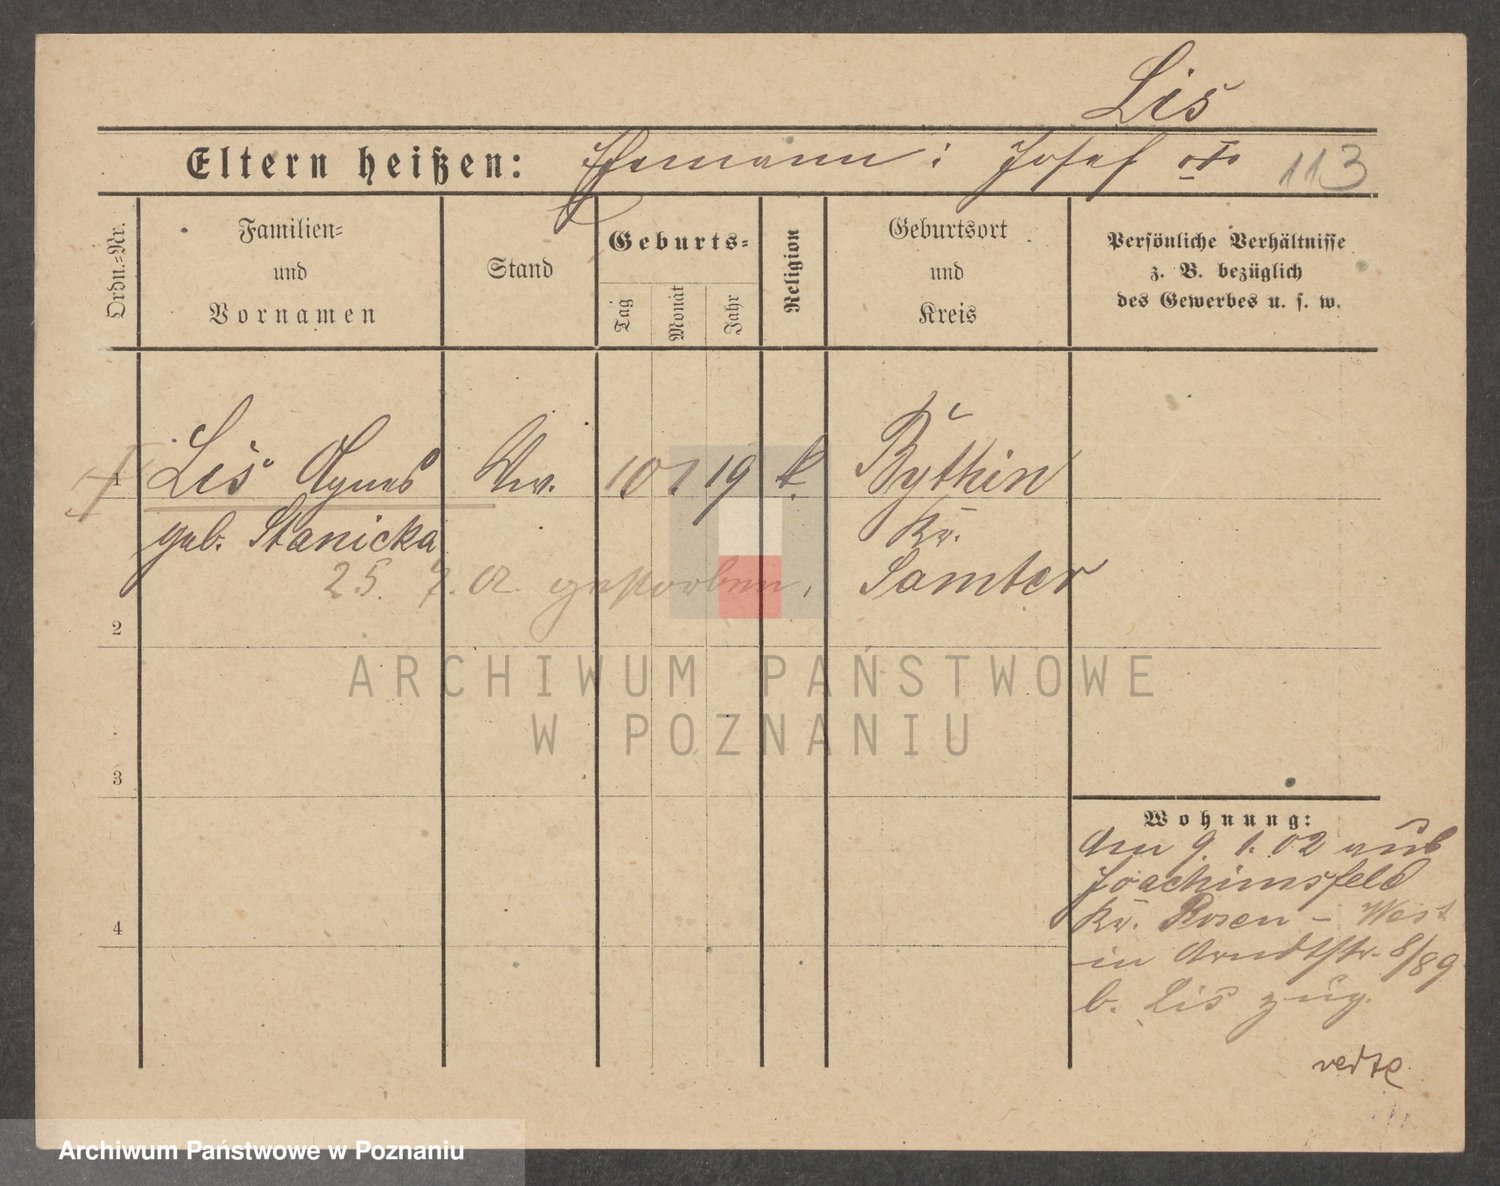 Lis
Eltern heißen: Ehemann: Josef 113
Ordn.-Nr.
Familien-
und
Vornamen
Stand
Geburts-
Tag
Monat
Jahr
Religion
Geburtsort
und
Kreis
Persönliche Verhältnisse
z. B. bezüglich
des Gewerbes u. s. w.
Lis Agnes Ww. 10 1 19 k. Bythin
geb. Stanicka Kr.
25. 7. 02. gestorben. Samter
2
3
4
ARCHIWUM PAŃSTWOWE
W POZNANIU
Wohnung:
Am 9. 1. 02 aus
Joachimsfeld
Kr. Posen - West
in Arndtstr. 8/89
b. Lis zug.
verte
Archiwum Państwowe w Poznaniu